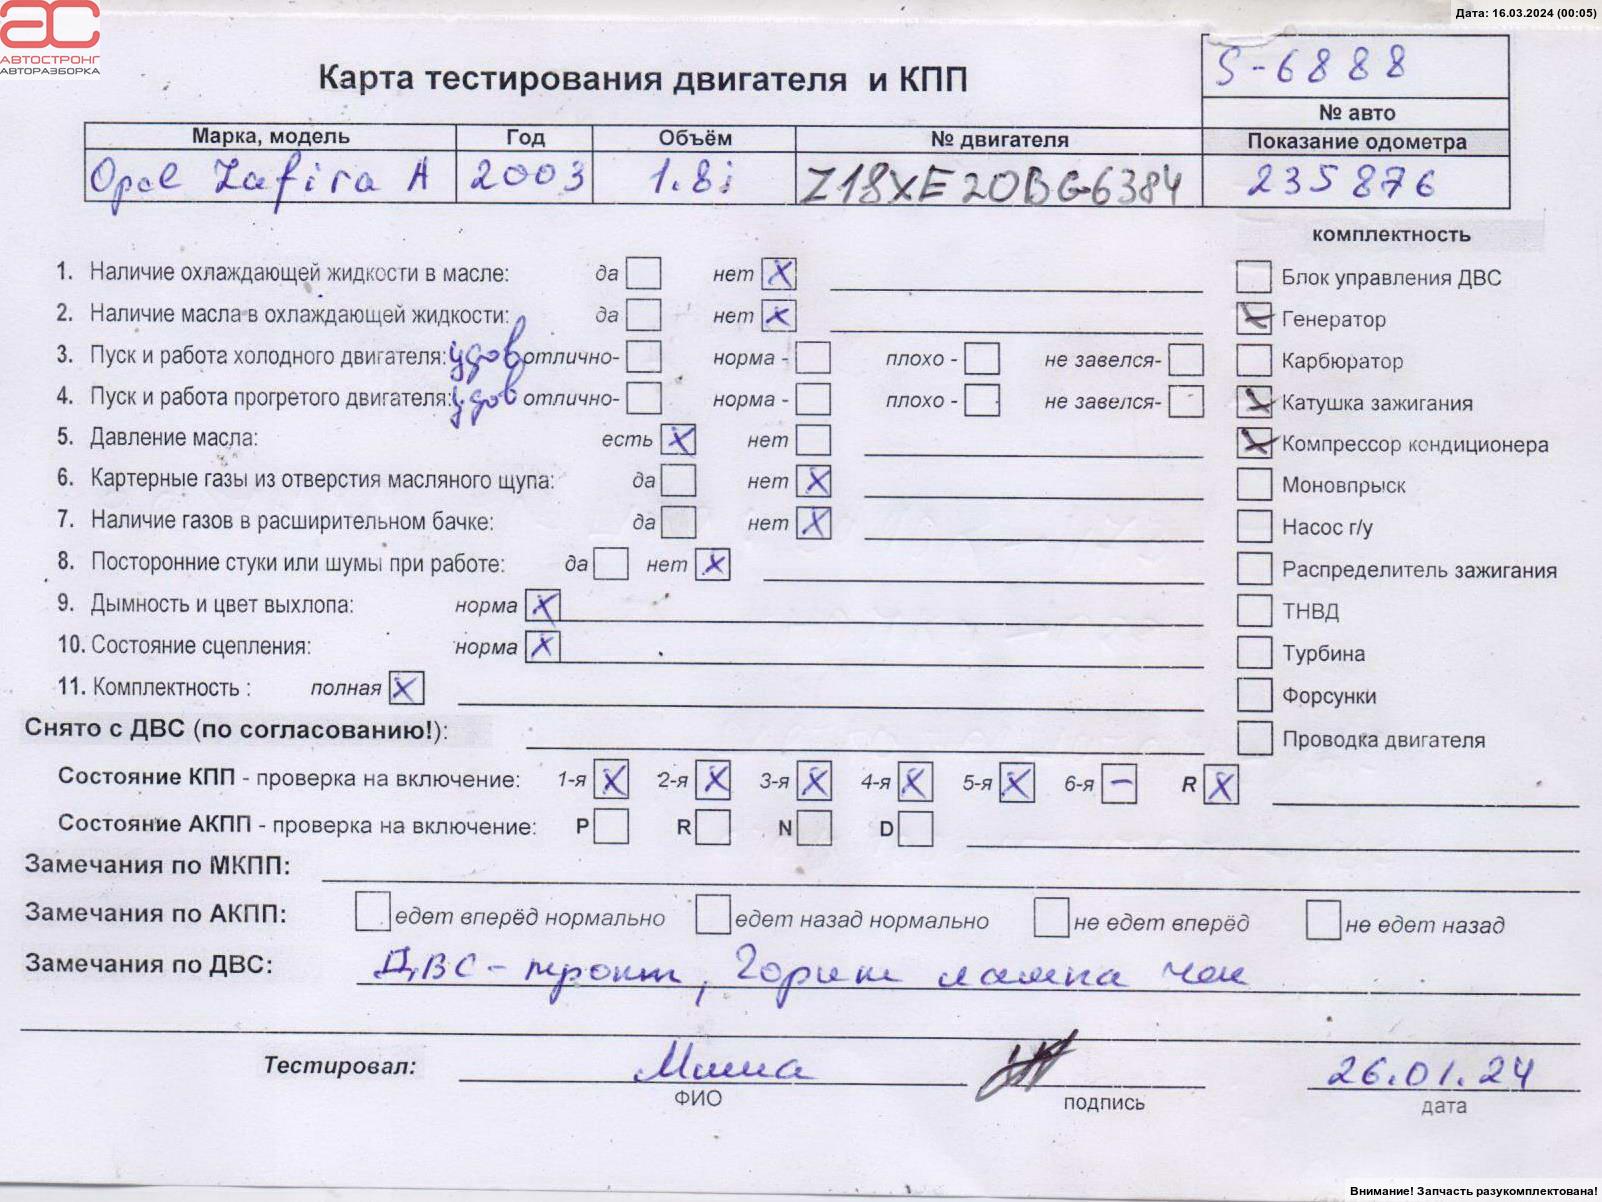 Дата: 16.03.2024 (00:05)
АС
АВТОСТРОНГ
АВТОРАЗБОРКА
S-6888
Карта тестирования двигателя и КПП
№ авто
Марка, модель Год Объём № двигателя Показание одометра
Opel Zafira A 2003 1.8i Z18XE20BG6384 235876
комплектность
1. Наличие охлаждающей жидкости в масле: да нет X
Блок управления ДВС
2. Наличие масла в охлаждающей жидкости: да нет X
X Генератор
3. Пуск и работа холодного двигателя: удов отлично- норма - плохо - не завелся-
Карбюратор
4. Пуск и работа прогретого двигателя: удов отлично- норма - плохо - не завелся-
X Катушка зажигания
5. Давление масла: есть X нет
X Компрессор кондиционера
6. Картерные газы из отверстия масляного щупа: да нет X
Моновпрыск
7. Наличие газов в расширительном бачке: да нет X
Насос г/у
8. Посторонние стуки или шумы при работе: да нет X
Распределитель зажигания
9. Дымность и цвет выхлопа: норма X
ТНВД
10. Состояние сцепления: норма X
Турбина
11. Комплектность : полная X
Форсунки
Снято с ДВС (по согласованию!):
Проводка двигателя
Состояние КПП - проверка на включение: 1-я X 2-я X 3-я X 4-я X 5-я X 6-я – R X
Состояние АКПП - проверка на включение: P R N D
Замечания по МКПП:
Замечания по АКПП: едет вперёд нормально едет назад нормально не едет вперёд не едет назад
Замечания по ДВС: ДВС - троит, Горит лампа чек
Тестировал: Миша 26.01.24
ФИО подпись дата
Внимание! Запчасть разукомплектована!